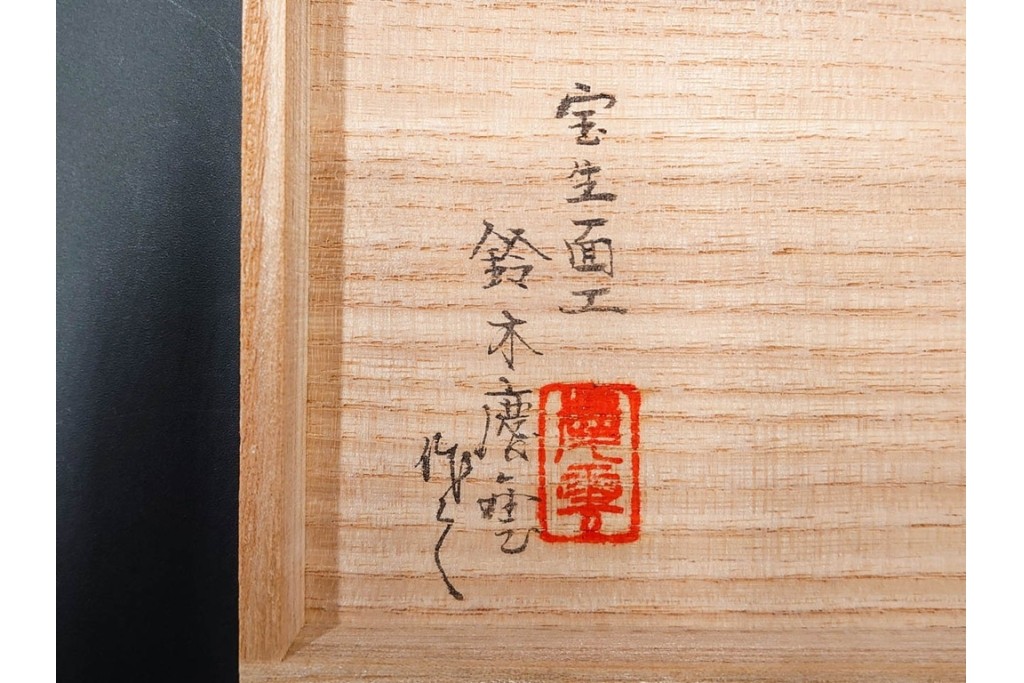 宝生面工
鈴木慶雲
作之
慶雲